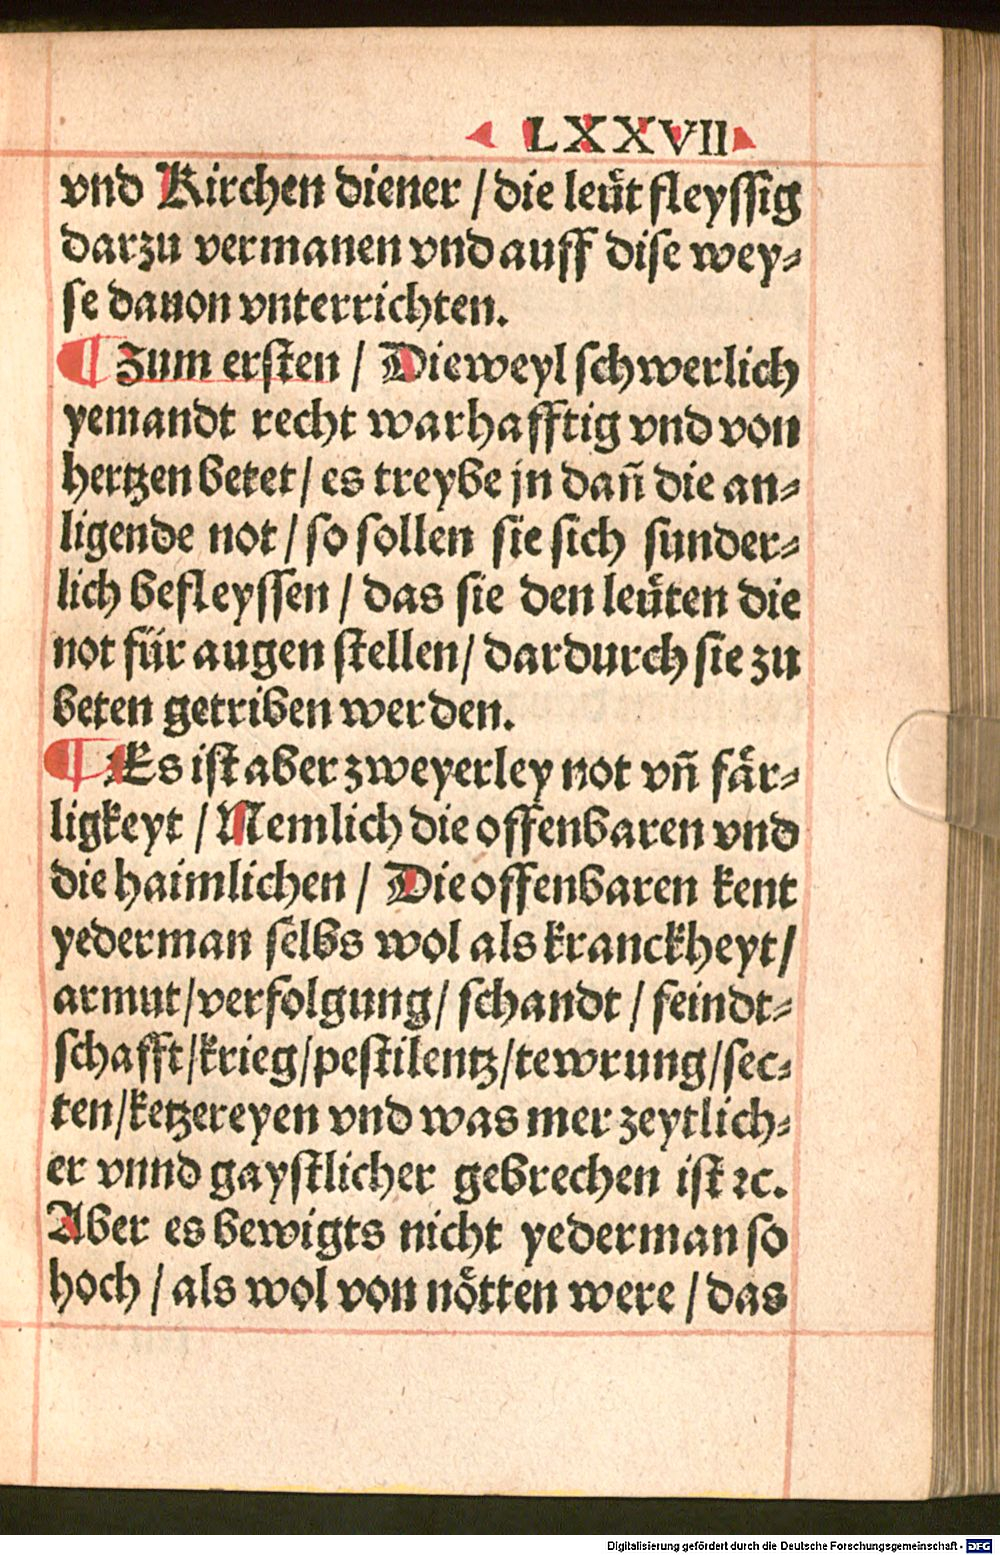 LXXVII
vnd Kirchen diener / die leüt fleyssig
darzu vermanen vnd auff dise wey⸗
se dauon vnterrichten.
¶ Zum ersten / Dieweyl schwerlich
yemandt recht warhafftig vnd von
hertzen betet / es treybe jn dañ die an⸗
ligende not / so sollen sie sich sunder⸗
lich befleyssen / das sie den leüten die
not für augen stellen / dardurch sie zu
beten getriben werden.
¶ Es ist aber zweyerley not vñ fär⸗
ligkeyt / Nemlich die offenbaren vnd
die haimlichen / Die offenbaren kent
yederman selbs wol als kranckheyt /
armut / verfolgung / schandt / feindt⸗
schafft / krieg / pestilentz / tewrung / sec⸗
ten / ketzereyen vnd was mer zeytlich⸗
er vnnd gaystlicher gebrechen ist ꝛc.
Aber es bewigts nicht yederman so
hoch / als wol von nötten were / das
Digitalisierung gefördert durch die Deutsche Forschungsgemeinschaft - DFG